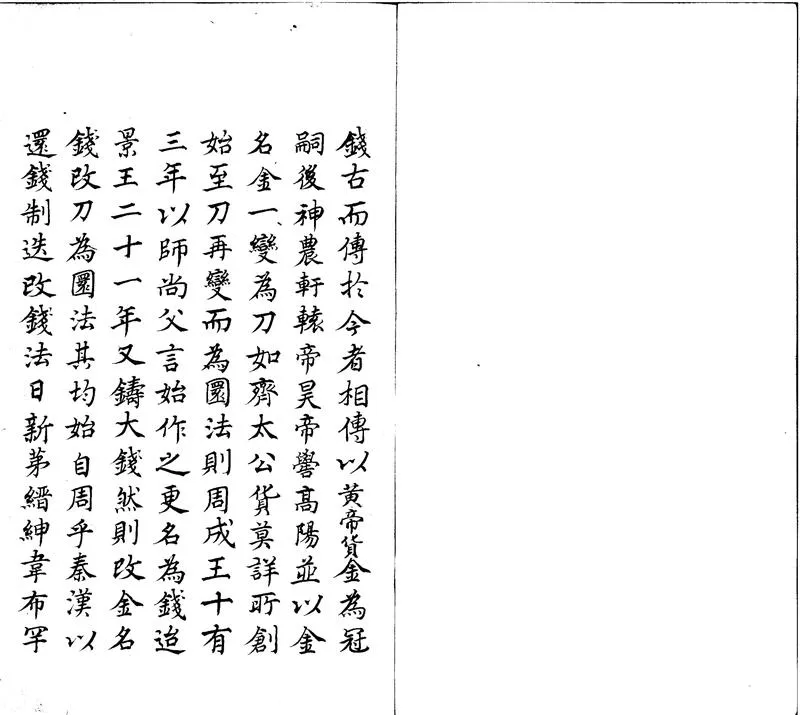 錢古而傳於今者相傳以黄帝貨金為冠
嗣後神農軒轅帝昊帝嚳高陽並以金
名金一變為刀如齊太公貨莫詳所創
始至刀再變而為圜法則周成王十有
三年以師尚父言始作之更名為錢迨
景王二十一年又鑄大錢然則改金名
錢改刀為圜法其均始自周乎秦漢以
還錢制迭改錢法日新苐縉紳韋布罕